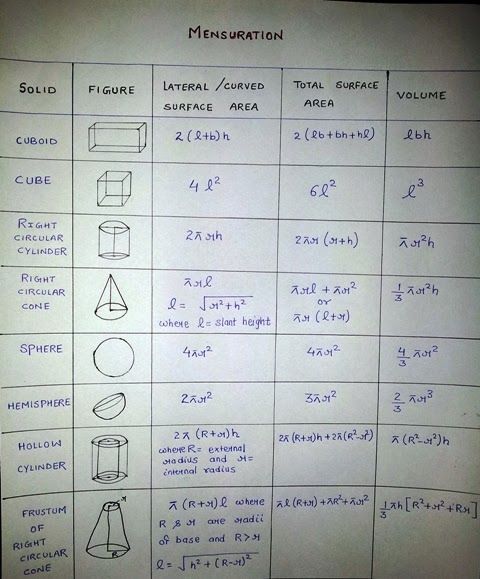 MENSURATION
SOLID FIGURE LATERAL / CURVED SURFACE AREA TOTAL SURFACE AREA VOLUME
CUBOID 2(l+b)h 2(lb+bh+hl) lbh
CUBE 4l² 6l² l³
RIGHT CIRCULAR CYLINDER 2πrh 2πr(r+h) πr²h
RIGHT CIRCULAR CONE πrl
l = √r²+h²
where l = slant height
πrl + πr²
or
πr(l+r)
1/3 πr²h
SPHERE 4πr² 4πr² 4/3 πr²
HEMISPHERE 2πr² 3πr² 2/3 πr³
HOLLOW CYLINDER 2π(R+r)h
where R = external
radius and r =
internal radius
2π(R+r)h + 2π(R²-r²)
π(R²-r²)h
FRUSTUM
OF
RIGHT
CIRCULAR
CONE
r
R
π(R+r)l where
R & r are radii
of base and R>r
l = √h²+(R-r)²
πl(R+r)+πR²+πr²
1/3 πh[R²+r²+Rr]